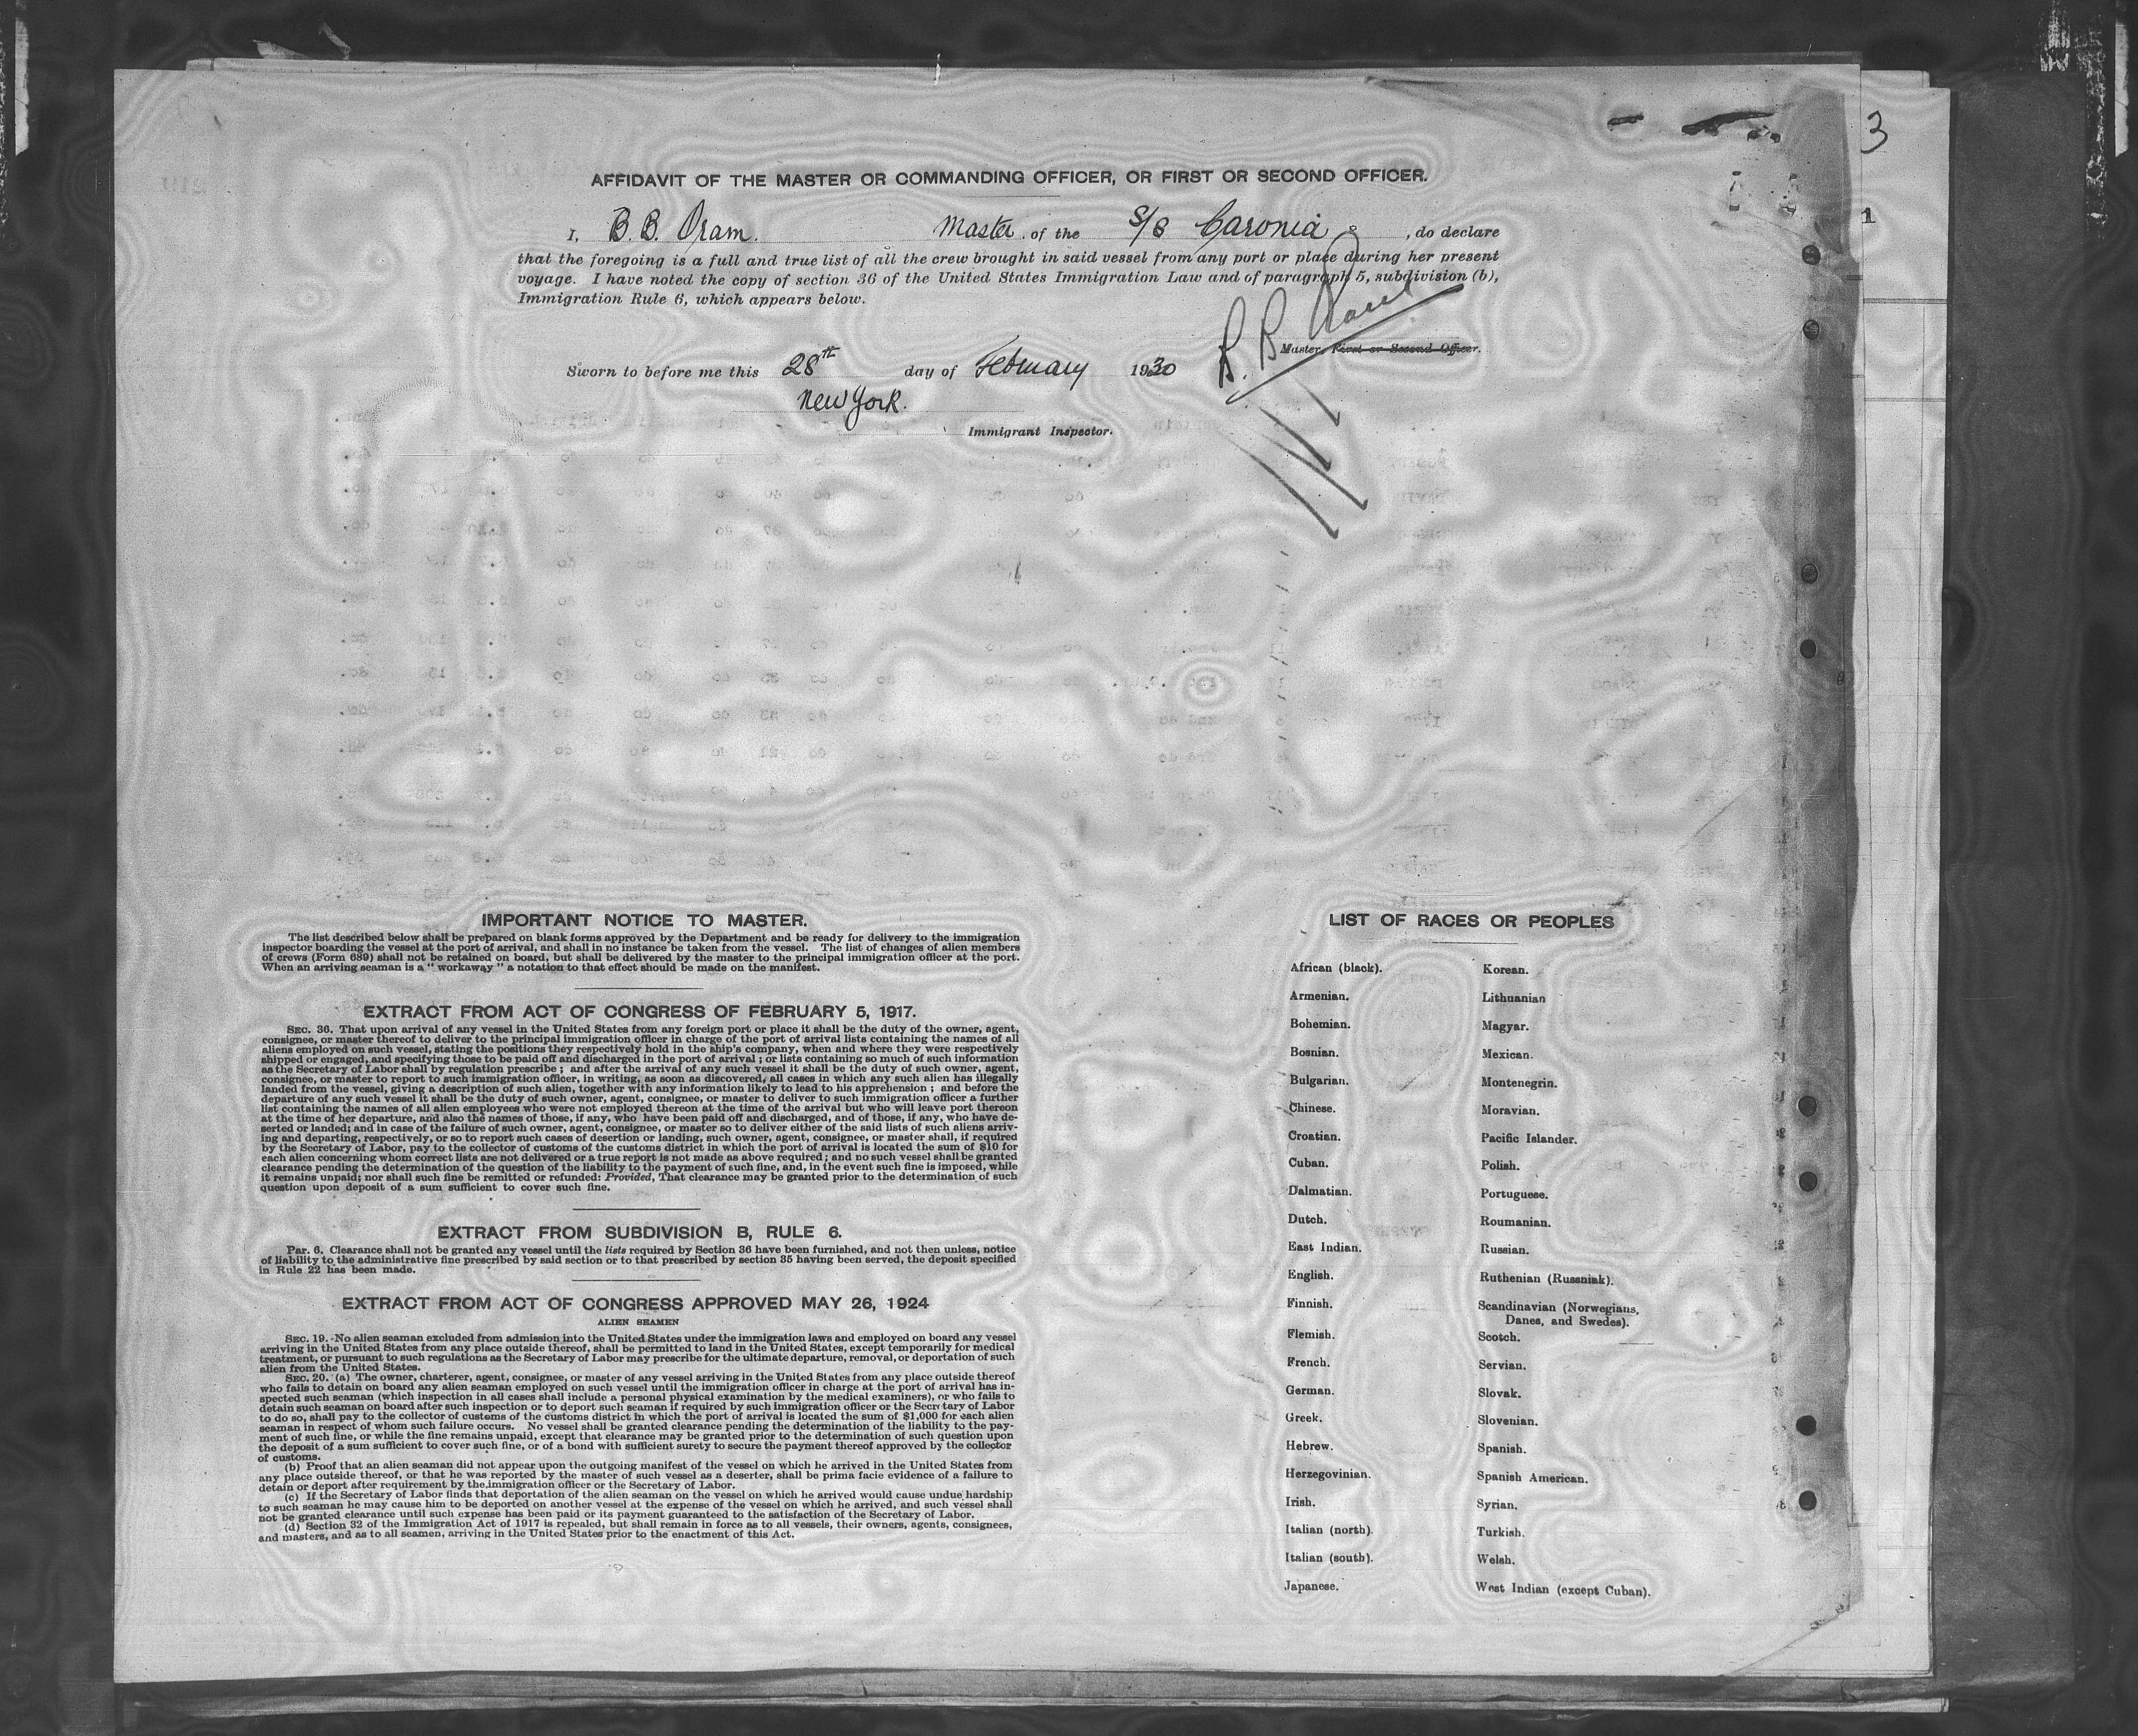 3
1
AFFIDAVIT OF THE MASTER OR COMMANDING OFFICER, OR FIRST OR SECOND OFFICER.
I, B.B. Oram. Master of the S/S Caronia, do declare
that the foregoing is a full and true list of all the crew brought in said vessel from any port or place during her present
voyage. I have noted the copy of section 36 of the United States Immigration Law and of paragraph 5, subdivision (b),
Immigration Rule 6, which appears below.
B. B. Oram
Master, First or Second Officer.
Sworn to before me this 28th day of February 1930
New York.
Immigrant Inspector.
IMPORTANT NOTICE TO MASTER.
The list described below shall be prepared on blank forms approved by the Department and be ready for delivery to the immigration
inspector boarding the vessel at the port of arrival, and shall in no instance be taken from the vessel. The list of changes of alien members
of crews (Form 689) shall not be retained on board, but shall be delivered by the master to the principal immigration officer at the port.
When an arriving seaman is a "workaway" a notation to that effect should be made on the manifest.
EXTRACT FROM ACT OF CONGRESS OF FEBRUARY 5, 1917.
SEC. 36. That upon arrival of any vessel in the United States from any foreign port or place it shall be the duty of the owner, agent,
consignee, or master thereof to deliver to the principal immigration officer in charge of the port of arrival lists containing the names of all
aliens employed on such vessel, stating the positions they respectively hold in the ship's company, when and where they were respectively
shipped or engaged, and specifying those to be paid off and discharged in the port of arrival; or lists containing so much of such information
as the Secretary of Labor shall by regulation prescribe; and after the arrival of any such vessel it shall be the duty of such owner, agent,
consignee, or master to report to such immigration officer, in writing, as soon as discovered, all cases in which any such alien has illegally
landed from the vessel, giving a description of such alien, together with any information likely to lead to his apprehension; and before the
departure of any such vessel it shall be the duty of such owner, agent, consignee, or master to deliver to such immigration officer a further
list containing the names of all alien employees who were not employed thereon at the time of the arrival but who will leave port thereon
at the time of her departure, and also the names of those, if any, who have been paid off and discharged, and of those, if any, who have de-
serted or landed; and in case of the failure of such owner, agent, consignee, or master so to deliver either of the said lists of such aliens arriv-
ing and departing, respectively, or so to report such cases of desertion or landing, such owner, agent, consignee, or master shall, if required
by the Secretary of Labor, pay to the collector of customs of the customs district in which the port of arrival is located the sum of $10 for
each alien concerning whom correct lists are not delivered or a true report is not made as above required; and no such vessel shall be granted
clearance pending the determination of the question of the liability to the payment of such fine, and, in the event such fine is imposed, while
it remains unpaid; nor shall such fine be remitted or refunded: Provided, That clearance may be granted prior to the determination of such
question upon deposit of a sum sufficient to cover such fine.
EXTRACT FROM SUBDIVISION B, RULE 6.
Par. 6. Clearance shall not be granted any vessel until the lists required by Section 36 have been furnished, and not then unless, notice
of liability to the administrative fine prescribed by said section or to that prescribed by section 35 having been served, the deposit specified
in Rule 22 has been made.
EXTRACT FROM ACT OF CONGRESS APPROVED MAY 26, 1924
ALIEN SEAMEN
SEC. 19. No alien seaman excluded from admission into the United States under the immigration laws and employed on board any vessel
arriving in the United States from any place outside thereof, shall be permitted to land in the United States, except temporarily for medical
treatment, or pursuant to such regulations as the Secretary of Labor may prescribe for the ultimate departure, removal, or deportation of such
alien from the United States.
SEC. 20. (a) The owner, charterer, agent, consignee, or master of any vessel arriving in the United States from any place outside thereof
who fails to detain on board any alien seaman employed on such vessel until the immigration officer in charge at the port of arrival has in-
spected such seaman (which inspection in all cases shall include a personal physical examination by the medical examiners), or who fails to
detain such seaman on board after such inspection or to deport such seaman if required by such immigration officer or the Secretary of Labor
to do so, shall pay to the collector of customs of the customs district in which the port of arrival is located the sum of $1,000 for each alien
seaman in respect of whom such failure occurs. No vessel shall be granted clearance pending the determination of the liability to the pay-
ment of such fine, or while the fine remains unpaid, except that clearance may be granted prior to the determination of such question upon
the deposit of a sum sufficient to cover such fine, or of a bond with sufficient surety to secure the payment thereof approved by the collector
of customs.
(b) Proof that an alien seaman did not appear upon the outgoing manifest of the vessel on which he arrived in the United States from
any place outside thereof, or that he was reported by the master of such vessel as a deserter, shall be prima facie evidence of a failure to
detain or deport after requirement by the immigration officer or the Secretary of Labor.
(c) If the Secretary of Labor finds that deportation of the alien seaman on the vessel on which he arrived would cause undue hardship
to such seaman he may cause him to be deported on another vessel at the expense of the vessel on which he arrived, and such vessel shall
not be granted clearance until such expense has been paid or its payment guaranteed to the satisfaction of the Secretary of Labor.
(d) Section 32 of the Immigration Act of 1917 is repealed, but shall remain in force as to all vessels, their owners, agents, consignees,
and masters, and as to all seamen, arriving in the United States prior to the enactment of this Act.
LIST OF RACES OR PEOPLES
African (black).
Armenian.
Bohemian.
Bosnian.
Bulgarian.
Chinese.
Croatian.
Cuban.
Dalmatian.
Dutch.
East Indian.
English.
Finnish.
Flemish.
French.
German.
Greek.
Hebrew.
Herzegovinian.
Irish.
Italian (north).
Italian (south).
Japanese.
Korean.
Lithuanian
Magyar.
Mexican.
Montenegrin.
Moravian.
Pacific Islander.
Polish.
Portuguese.
Roumanian.
Russian.
Ruthenian (Russniak).
Scandinavian (Norwegians,
Danes, and Swedes).
Scotch.
Servian.
Slovak.
Slovenian.
Spanish.
Spanish American.
Syrian.
Turkish.
Welsh.
West Indian (except Cuban).